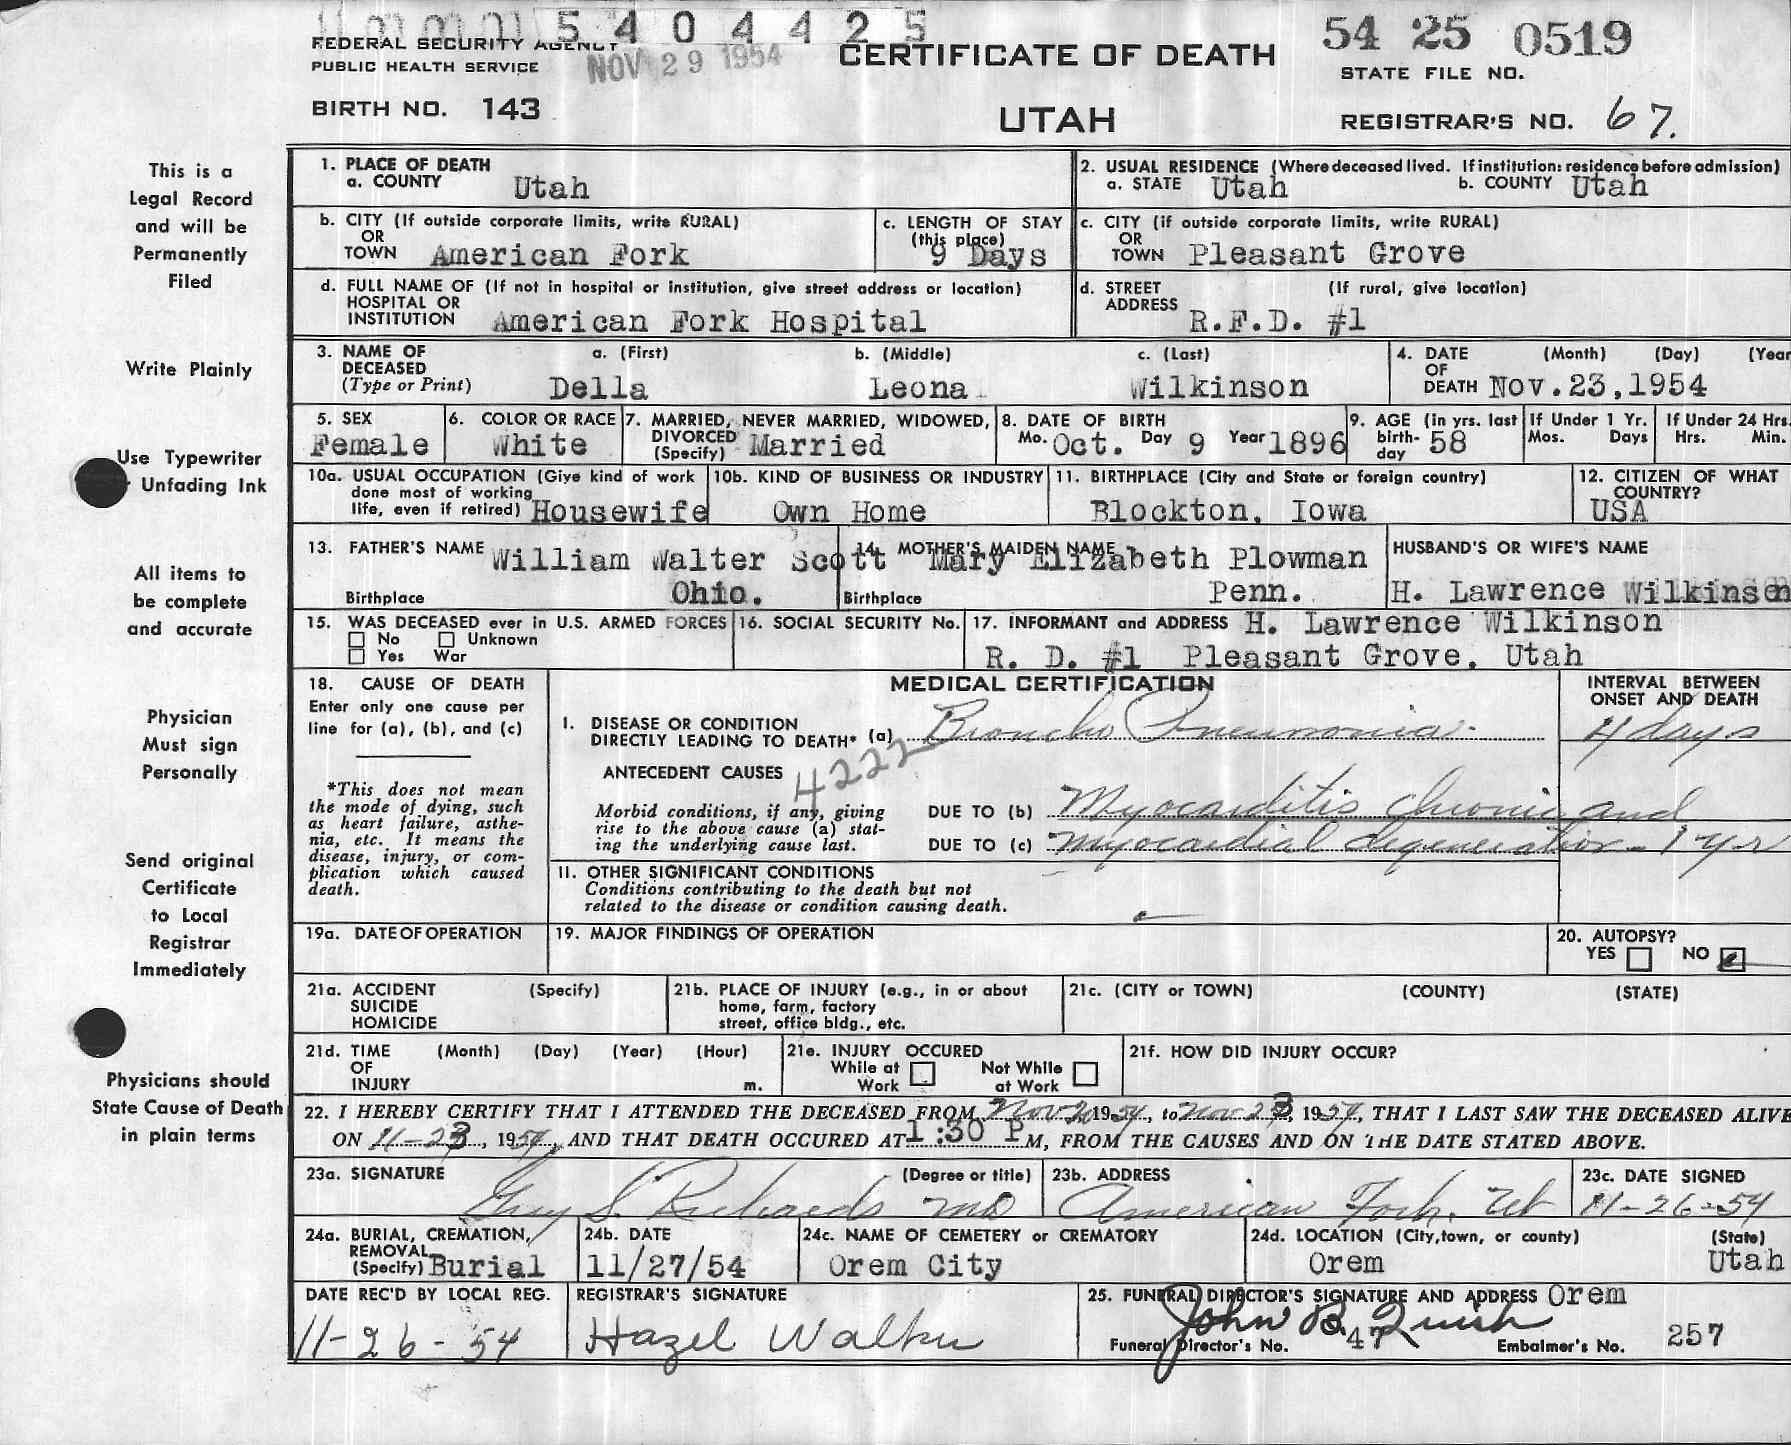 5 4 0 4 4 2 5
FEDERAL SECURITY AGENCY
PUBLIC HEALTH SERVICE
NOV 29 1954
CERTIFICATE OF DEATH
54 25 0519
STATE FILE NO.
BIRTH NO. 143
UTAH
REGISTRAR'S NO. 67.
This is a
Legal Record
and will be
Permanently
Filed
Write Plainly
Use Typewriter
Unfading Ink
All items to
be complete
and accurate
Physician
Must sign
Personally
Send original
Certificate
to Local
Registrar
Immediately
Physicians should
State Cause of Death
in plain terms
1. PLACE OF DEATH
a. COUNTY Utah
2. USUAL RESIDENCE (Where deceased lived. If institution: residence before admission)
a. STATE Utah b. COUNTY Utah
b. CITY (If outside corporate limits, write RURAL)
OR
TOWN American Fork
c. LENGTH OF STAY
(this place)
9 Days
c. CITY (if outside corporate limits, write RURAL)
OR
TOWN Pleasant Grove
d. FULL NAME OF (If not in hospital or institution, give street address or location)
HOSPITAL OR
INSTITUTION American Fork Hospital
d. STREET (If rural, give location)
ADDRESS
R.F.D. #1
3. NAME OF a. (First) b. (Middle) c. (Last)
DECEASED
(Type or Print) Della Leona Wilkinson
4. DATE (Month) (Day) (Year
OF
DEATH Nov.23,1954
5. SEX
Female
6. COLOR OR RACE
White
7. MARRIED, NEVER MARRIED, WIDOWED,
DIVORCED
(Specify) Married
8. DATE OF BIRTH
Mo. Oct. Day 9 Year 1896
9. AGE (in yrs. last
birth-
day 58
If Under 1 Yr.
Mos. Days
If Under 24 Hrs.
Hrs. Min.
10a. USUAL OCCUPATION (Give kind of work
done most of working
life, even if retired) Housewife
10b. KIND OF BUSINESS OR INDUSTRY
Own Home
11. BIRTHPLACE (City and State or foreign country)
Blockton, Iowa
12. CITIZEN OF WHAT
COUNTRY?
USA
13. FATHER'S NAME William Walter Scott
Birthplace Ohio.
14. MOTHER'S MAIDEN NAME
Mary Elizabeth Plowman
Birthplace Penn.
HUSBAND'S OR WIFE'S NAME
H. Lawrence Wilkinson
15. WAS DECEASED ever in U.S. ARMED FORCES
No Unknown
Yes War
16. SOCIAL SECURITY No.
17. INFORMANT and ADDRESS H. Lawrence Wilkinson
R. D. #1 Pleasant Grove, Utah
18. CAUSE OF DEATH
Enter only one cause per
line for (a), (b), and (c)
*This does not mean
the mode of dying, such
as heart failure, asthe-
nia, etc. It means the
disease, injury, or com-
plication which caused
death.
MEDICAL CERTIFICATION
INTERVAL BETWEEN
ONSET AND DEATH
I. DISEASE OR CONDITION
DIRECTLY LEADING TO DEATH* (a) Broncho Pneumonia. 4 days
4222
ANTECEDENT CAUSES
Morbid conditions, if any, giving
rise to the above cause (a) stat-
ing the underlying cause last.
DUE TO (b) Myocarditis chronic and
DUE TO (c) myocardial degeneration - 1 yr
II. OTHER SIGNIFICANT CONDITIONS
Conditions contributing to the death but not
related to the disease or condition causing death.
19a. DATE OF OPERATION
19. MAJOR FINDINGS OF OPERATION
20. AUTOPSY?
YES NO
21a. ACCIDENT (Specify)
SUICIDE
HOMICIDE
21b. PLACE OF INJURY (e.g., in or about
home, farm, factory
street, office bldg., etc.
21c. (CITY or TOWN) (COUNTY) (STATE)
21d. TIME (Month) (Day) (Year) (Hour)
OF
INJURY m.
21e. INJURY OCCURED
While at Not While
Work at Work
21f. HOW DID INJURY OCCUR?
22. I HEREBY CERTIFY THAT I ATTENDED THE DECEASED FROM Nov 20 1954, to Nov 23, 1954, THAT I LAST SAW THE DECEASED ALIVE
ON 11-23, 1954, AND THAT DEATH OCCURED AT 1:30 P M, FROM THE CAUSES AND ON THE DATE STATED ABOVE.
23a. SIGNATURE (Degree or title)
Guy S. Richards MD
23b. ADDRESS
American Fork, Ut
23c. DATE SIGNED
11-26-54
24a. BURIAL, CREMATION,
REMOVAL
(Specify) Burial
24b. DATE
11/27/54
24c. NAME OF CEMETERY or CREMATORY
Orem City
24d. LOCATION (City, town, or county) (State)
Orem Utah
DATE REC'D BY LOCAL REG.
11-26-54
REGISTRAR'S SIGNATURE
Hazel Walker
25. FUNERAL DIRECTOR'S SIGNATURE AND ADDRESS Orem
John B.
Funeral Director's No. 47 Embalmer's No. 257